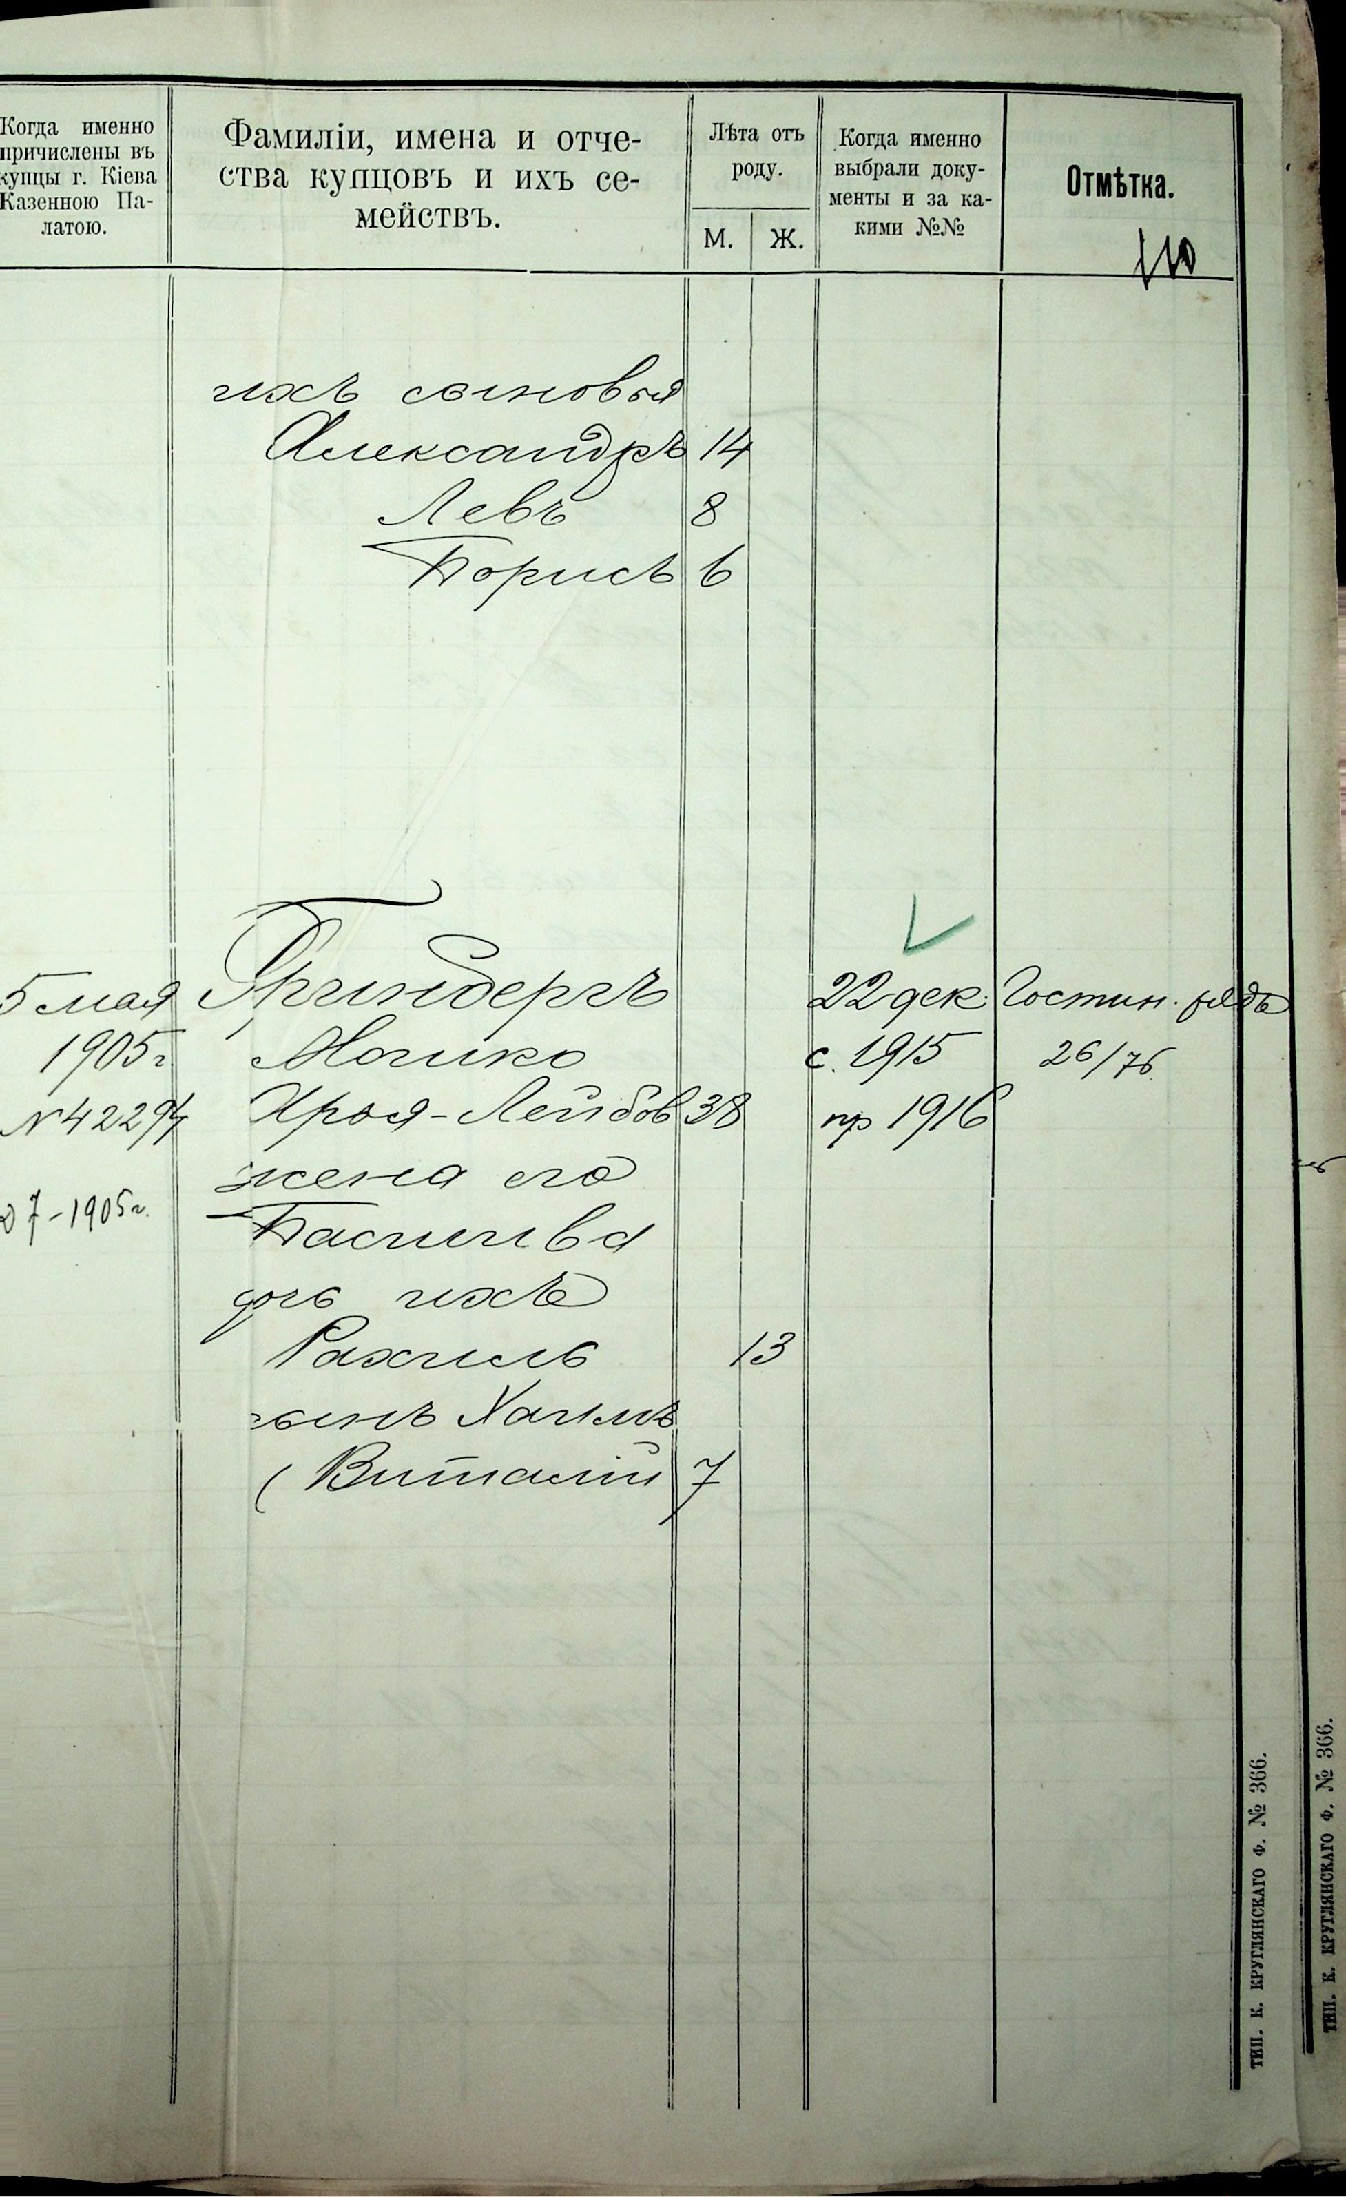 Когда именно
причислены въ
купцы г. Кіева
Казенною Па-
латою.
Фамиліи, имена и отче-
ства купцовъ и ихъ се-
мействъ.
Лѣта отъ
роду.
М. Ж.
Когда именно
выбрали доку-
менты и за ка-
кими №№
Отмѣтка.
ихъ сыновья
Александръ 14
Левъ 8
Борисъ 6
5 мая Гринбергъ 22 дек. Гостин. рядъ
1905 г. Мошко с. 1915 26/76.
№ 42294 Арья-Лейбов 38 пр 1916
жена его
7-1905 г. Басшева
дочь ихъ
Рахиль 13
сынъ Хаимъ
(Виталій 7
ТИП. К. КРУГЛЯНСКАГО Ф. № 366.
ТИП. К. КРУГЛЯНСКАГО Ф. № 366.